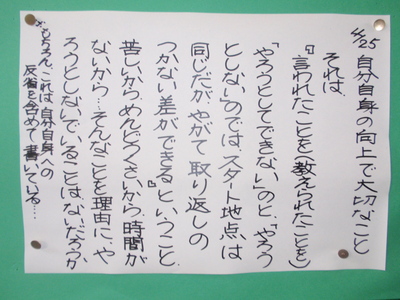 4/25 自分自身の向上で大切なこと
それは、
『言われたことを(教えられたことを)
「やろうとしてできない」のと、「やろう
としない」のでは、スタート地点は
同じだが、やがて取り返しの
つかない差ができる』ということ。
苦しいから、めんどくさいから、時間が
ないから…そんなことを理由に、や
ろうとしないでいることはないだろうか
※もちろん、これは自分自身への
反省を含めて書いている…